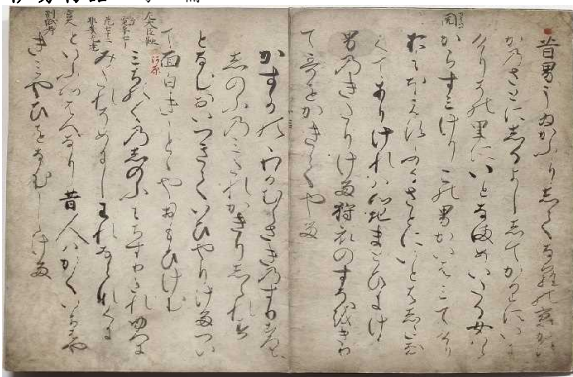 昔男うゐかふりしてならの京かす
かのさとにしるよししてかりにいに
けりその里にいとなまめいたる女は
らからすみけりこの男かいまみてけり
おもほえすふるさとにいとはしたな
くてありけれは心地まとひにけり
男のきたりける狩衣のすそをきり
て哥をかきてやる
かすかのゝわかむらさきのすり衣
しのふのみたれかきりしられす
となむをいつきていひやりけるつい
て面白きことゝやおもひけむ
みちのくのしのふもちすりたれゆへに
みたれそめにしわれならなくに
といふ哥の心はへなり昔人はかくいちはや
きみやひをなむしける